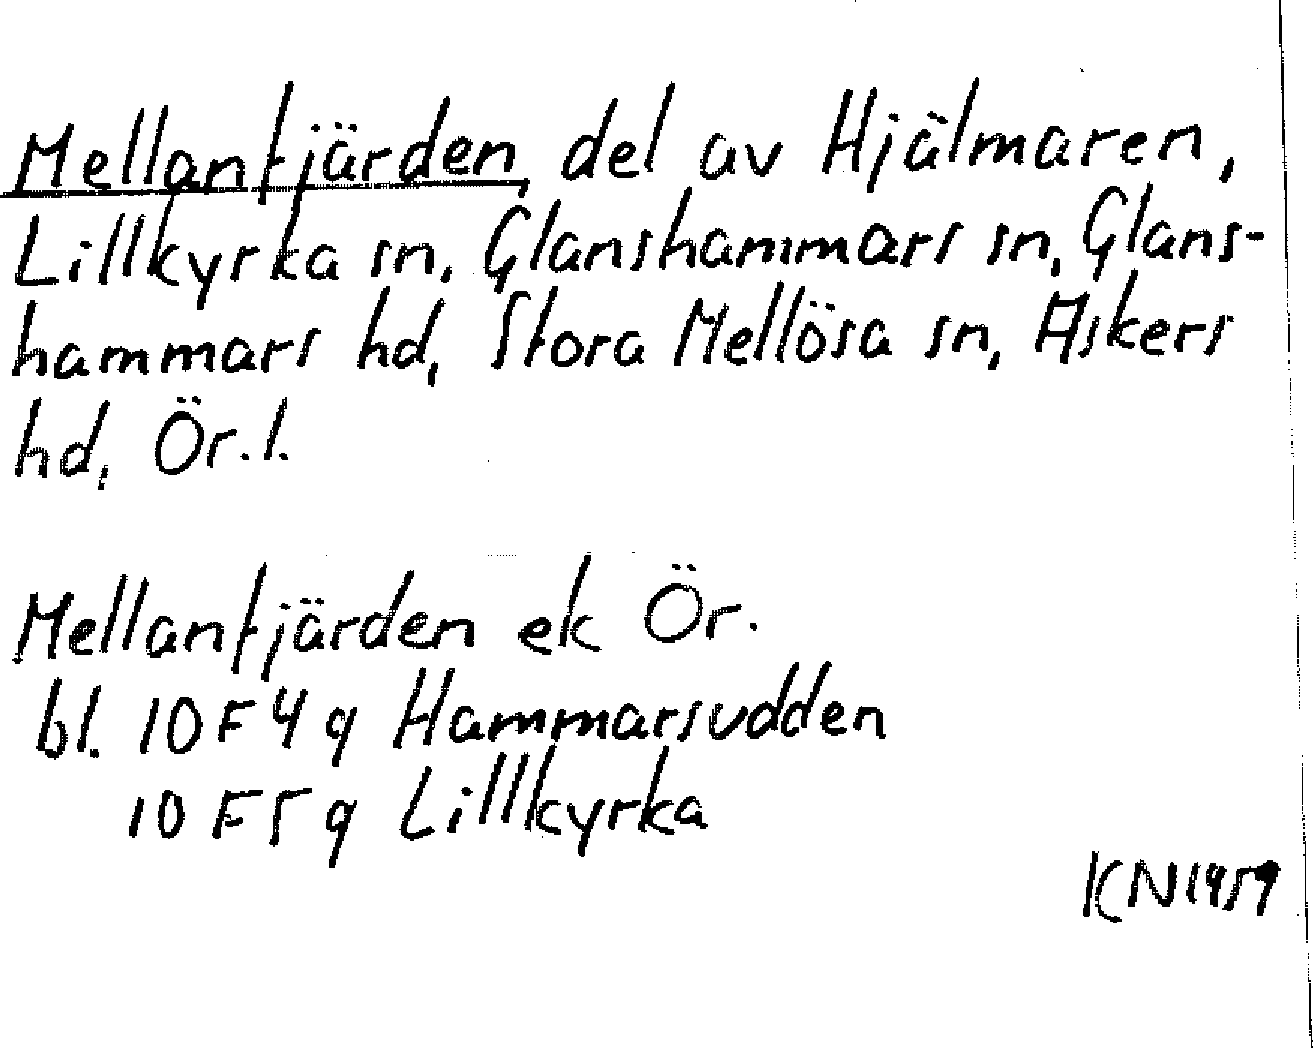 Mellanfjärden, del av Hjälmaren,
Lillkyrka sn, Glanshammars sn, Glans-
hammars hd, Stora Mellösa sn, Askers
hd, Ör. l.
Mellanfjärden ek Ör.
bl. 10 F 4 g Hammarsudden
10 F 5 g Lillkyrka
KN 1959